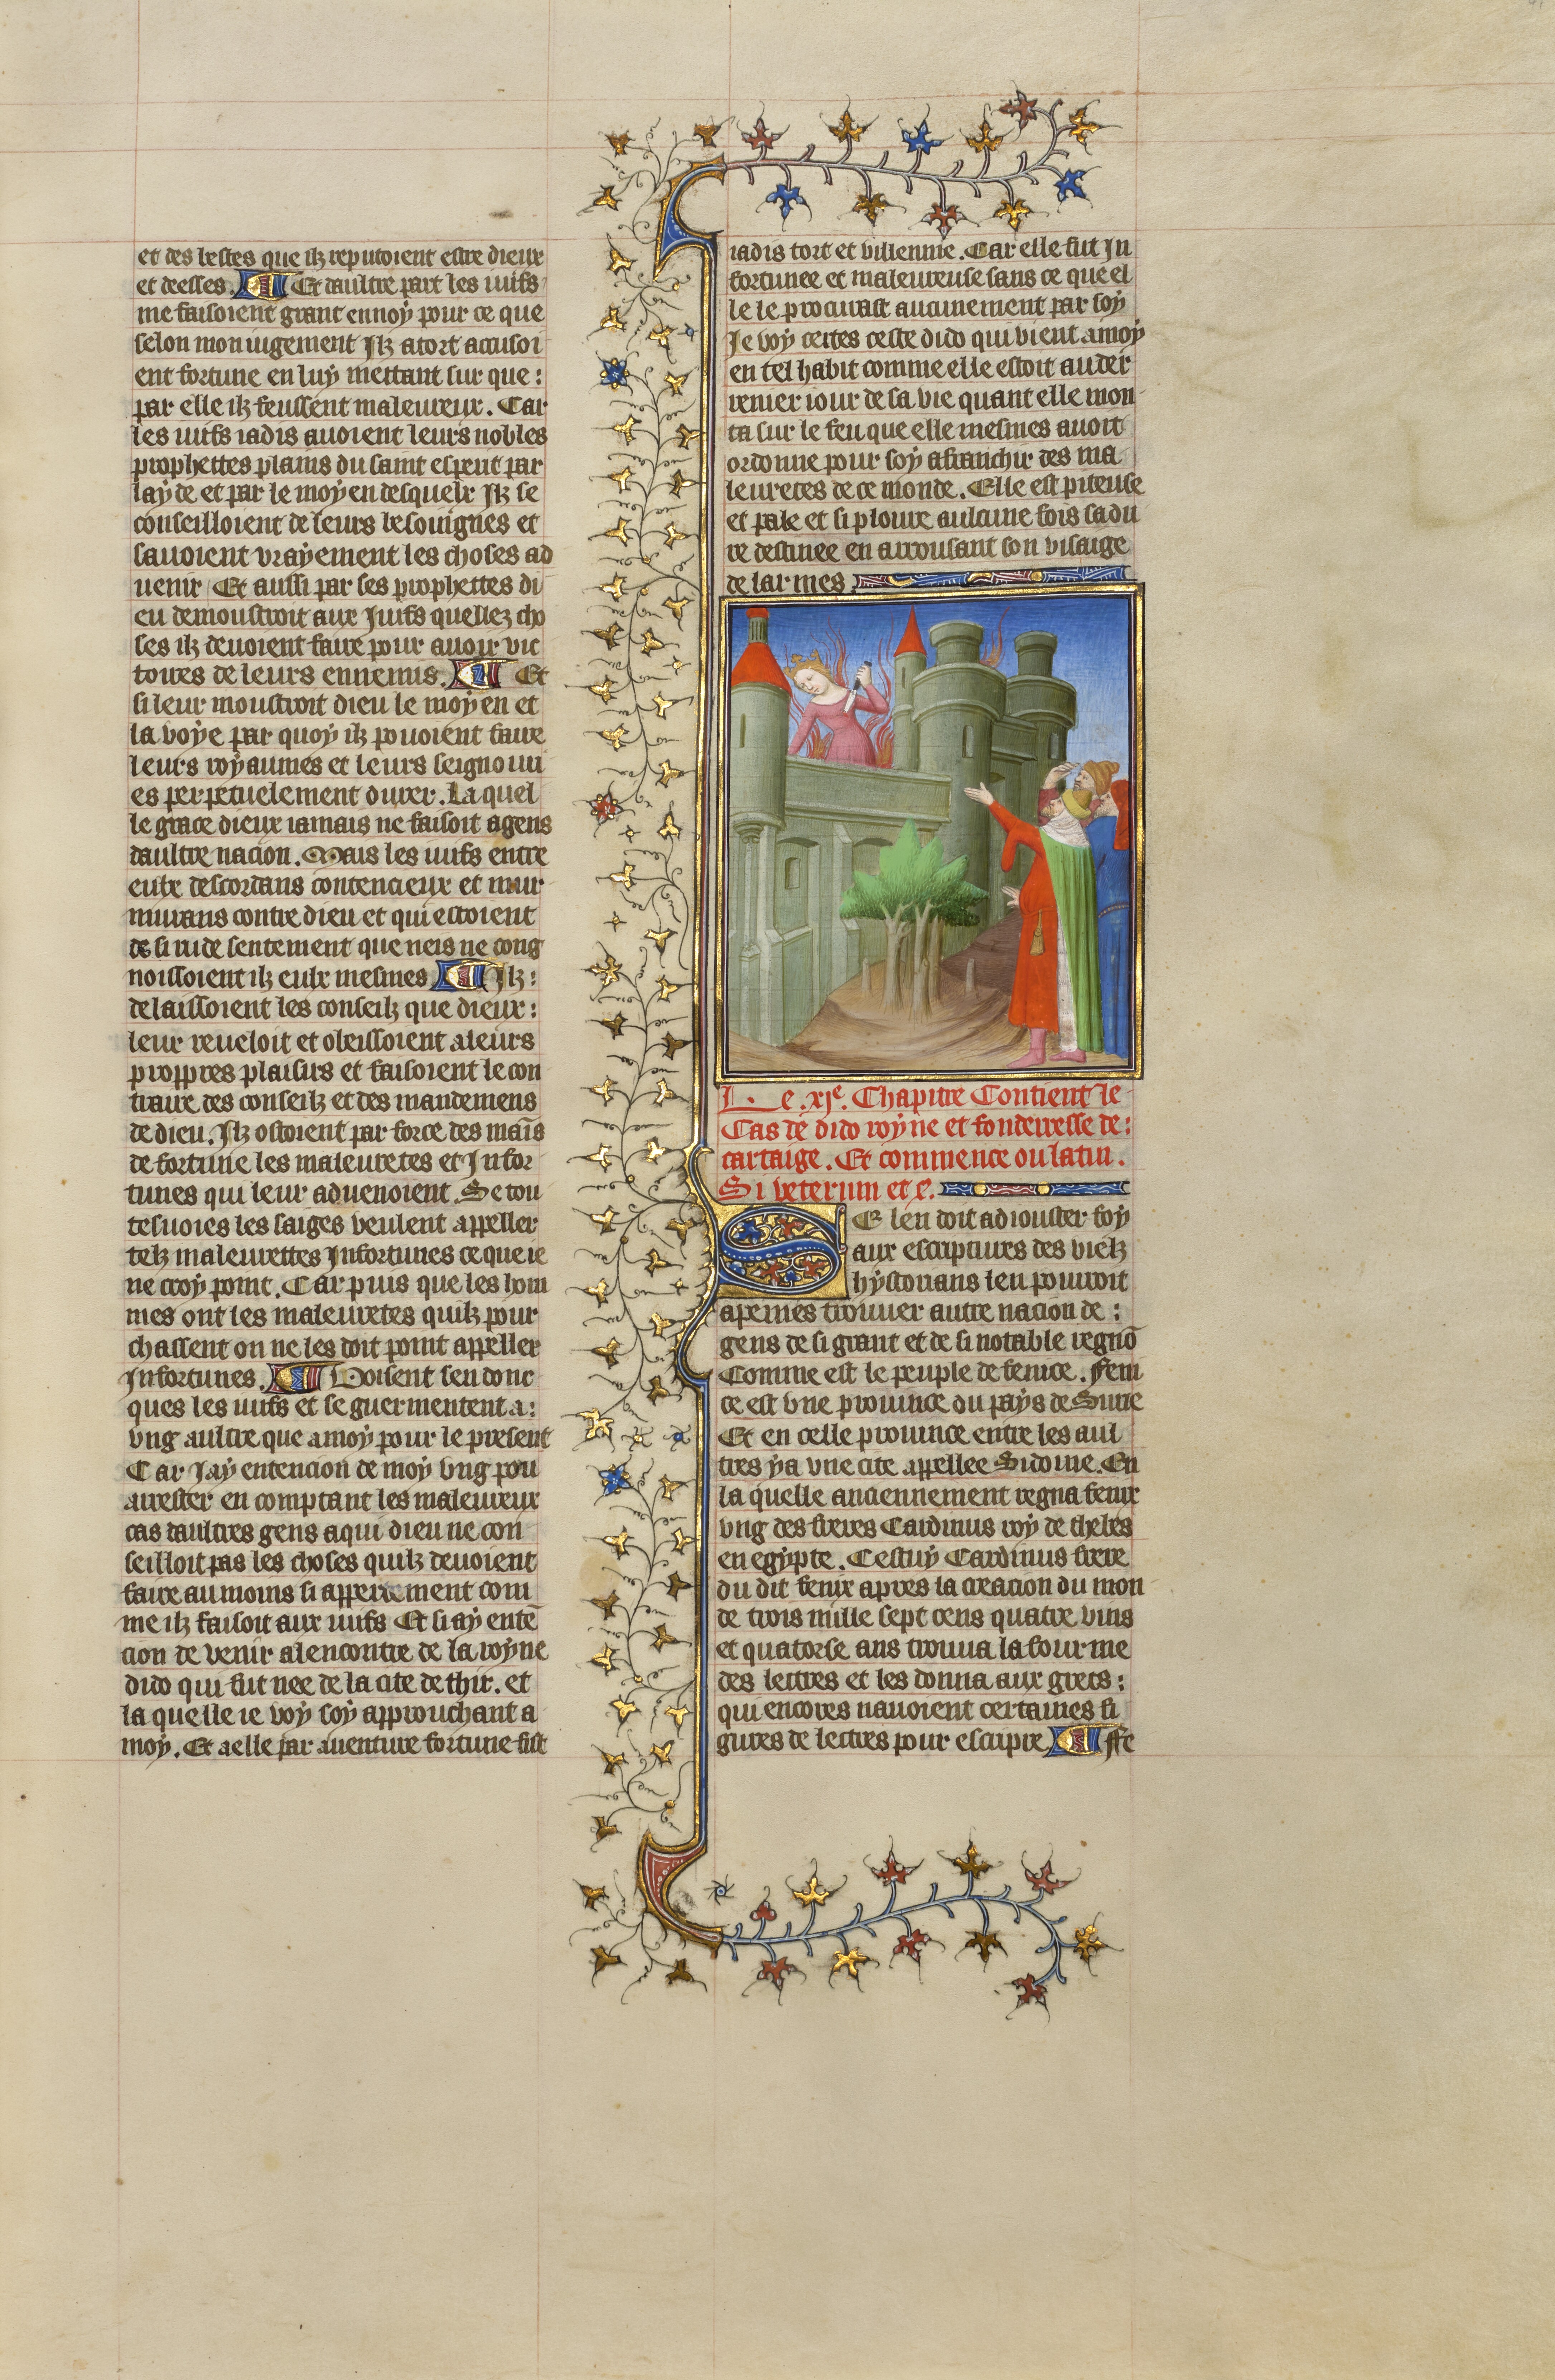 et des bestes que ilz reputoient estre dieux
et deesses. Et daultre part les iuifs
me faisoient grant ennoy pour ce que
selon mon iugement Jlz a tort accusoi
ent fortune en luy mettant sur que :
par elle ilz feussent maleureux. Car
les iuifs iadis auoient leurs nobles
prophettes plains du saint esperit par
layde et par le moyen desquelx Jlz se
conseilloient de leurs besoingnes et
sauoient vrayement les choses ad
uenir Et aussi par ses prophettes di
eu demoustroit aux Juifs quellez cho
ses ilz deuoient faire pour auoir vic
toires de leurs ennemis. Et
si leur moustroit dieu le moyen et
la voye par quoy ilz pouoient faire
leurs royaumes et leurs seignouri
es perpetuelement durer. La quel
le grace dieux iamais ne faisoit a gens
daultre nacion. Mais les iuifs entre
eulx descordans contencieux et mur
murans contre dieu et qui estoient
de si rude sentement que neis ne cong
noissoient ilz eulx mesmes Jlz :
delaissoient les conseilz que dieux :
leur reueloit et obeissoient a leurs
proppres plaisirs et faisoient le con
traire des conseilz et des mandemens
de dieu. Jlz ostoient par force des mais
de fortune les maleuretes et Jnfor
tunes qui leur aduenoient. Se tou
tesuoies les saiges veulent appeller
telz maleurettes Jnfortunes ce que ie
ne croy point. Car puis que les hom
mes ont les maleuretes quilz pour
chassent on ne les doit point appeller
Jnfortunes. Voisent sen donc
ques les iuifs et se guermentent a :
vng aultre que a moy pour le present
Car Jay entencion de moy vng pou
arrester en comptant les maleureux
cas daultres gens a qui dieu ne con
seilloit pas les choses quilz deuoient
faire au moins si appertement com
me ilz faisoit aux iuifs Et si ay enten
cion de venir alencontre de la royne
dido qui fut nee de la cite de thir. et
la quelle ie voy soy approuchant a
moy. Et a elle par auenture fortune fist
iadis tort et villennie. Car elle fut Jn
fortunee et maleureuse sans ce que el
le le procurast aucunement par soy
Je voy certes ceste dido qui vient a moy
en tel habit comme elle estoit au der
renier iour de sa vie quant elle mon
ta sur le feu que elle mesmes auoit
ordonne pour soy afranchir des ma
leuretes de ce monde. Elle est piteuse
et pale et si ploure aulcune fois sa du
re destinee en arrousant son visaige
de larmes
Le .xje. Chapitre Contient le
Cas de dido royne et fonderresse de :
cartaige. Et commence ou latin.
Si veterum et c.
SE len doit adiouster foy
aux escriptures des vielz
hystorians len pourroit
a peines trouuer autre nacion de :
gens de si grant et de si notable regno
Comme est le peuple de fenice. Feni
ce est vne prouince ou pays de Surie
Et en celle prouince entre les aul
tres y a vne cite appellee Sidoine. En
la quelle anciennement regna fenix
vng des freres Cardinus roy de thebes
en egypte. Cestuy Cardinus frere
du dit fenix apres la creacion du mon
de trois mille sept cens quatre vins
et quatorse ans trouua la fourme
des lettres et les donna aux grecs :
qui encores nauoient certaines fi
gures de lettres pour escripre ffe